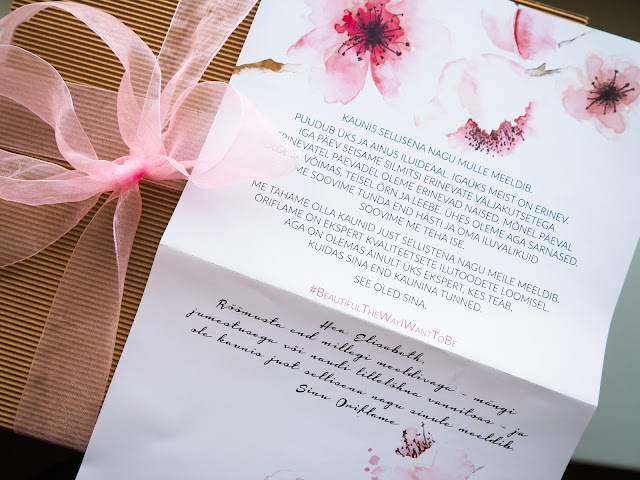 KAUNIS SELLISENA NAGU MULLE MEELDIB.
PUUDUB ÜKS JA AINUS ILUIDEAAL. IGAÜKS MEIST ON ERINEV.
IGA PÄEV SEISAME SILMITSI ERINEVATE VÄLJAKUTSETEGA.
ERINEVATEL PÄEVADEL OLEME ERINEVAD NAISED. MÕNEL PÄEVAL
VÕIMAS, TEISEL ÕRN JA LEEBE. ÜHES OLEME AGA SARNASED.
ME SOOVIME TUNDA END HÄSTI JA OMA ILUVALIKUID
SOOVIME ME TEHA ISE.
ME TAHAME OLLA KAUNID JUST SELLISTENA NAGU MEILE MEELDIB.
ORIFLAME ON EKSPERT KVALITEETSETE ILUTOODETE LOOMISEL.
AGA ON OLEMAS AINULT ÜKS EKSPERT, KES TEAB,
KUIDAS SINA END KAUNINA TUNNED.
SEE OLED SINA.
#BEAUTIFULTHEWAYIWANTTOBE
Hea Elisabeth,
Rõõmusta end millegi meeldivaga - mängi
jumestusega või naudi lillelõhna vannitoas - ja
ole kaunis just sellisena nagu sinule meeldib.
Sinu Oriflame